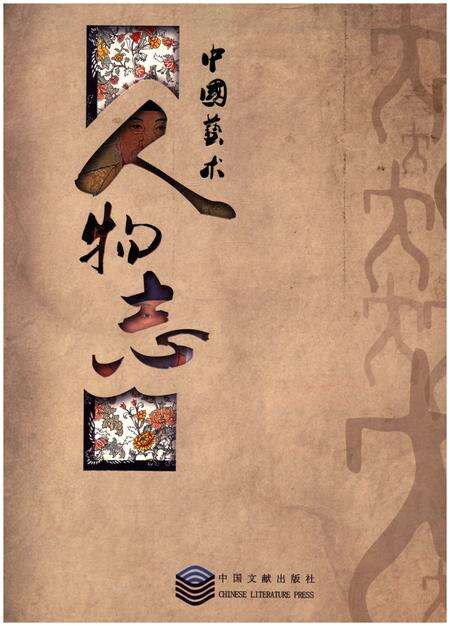 中國藝术
人物志
中国文献出版社
CHINESE LITERATURE PRESS